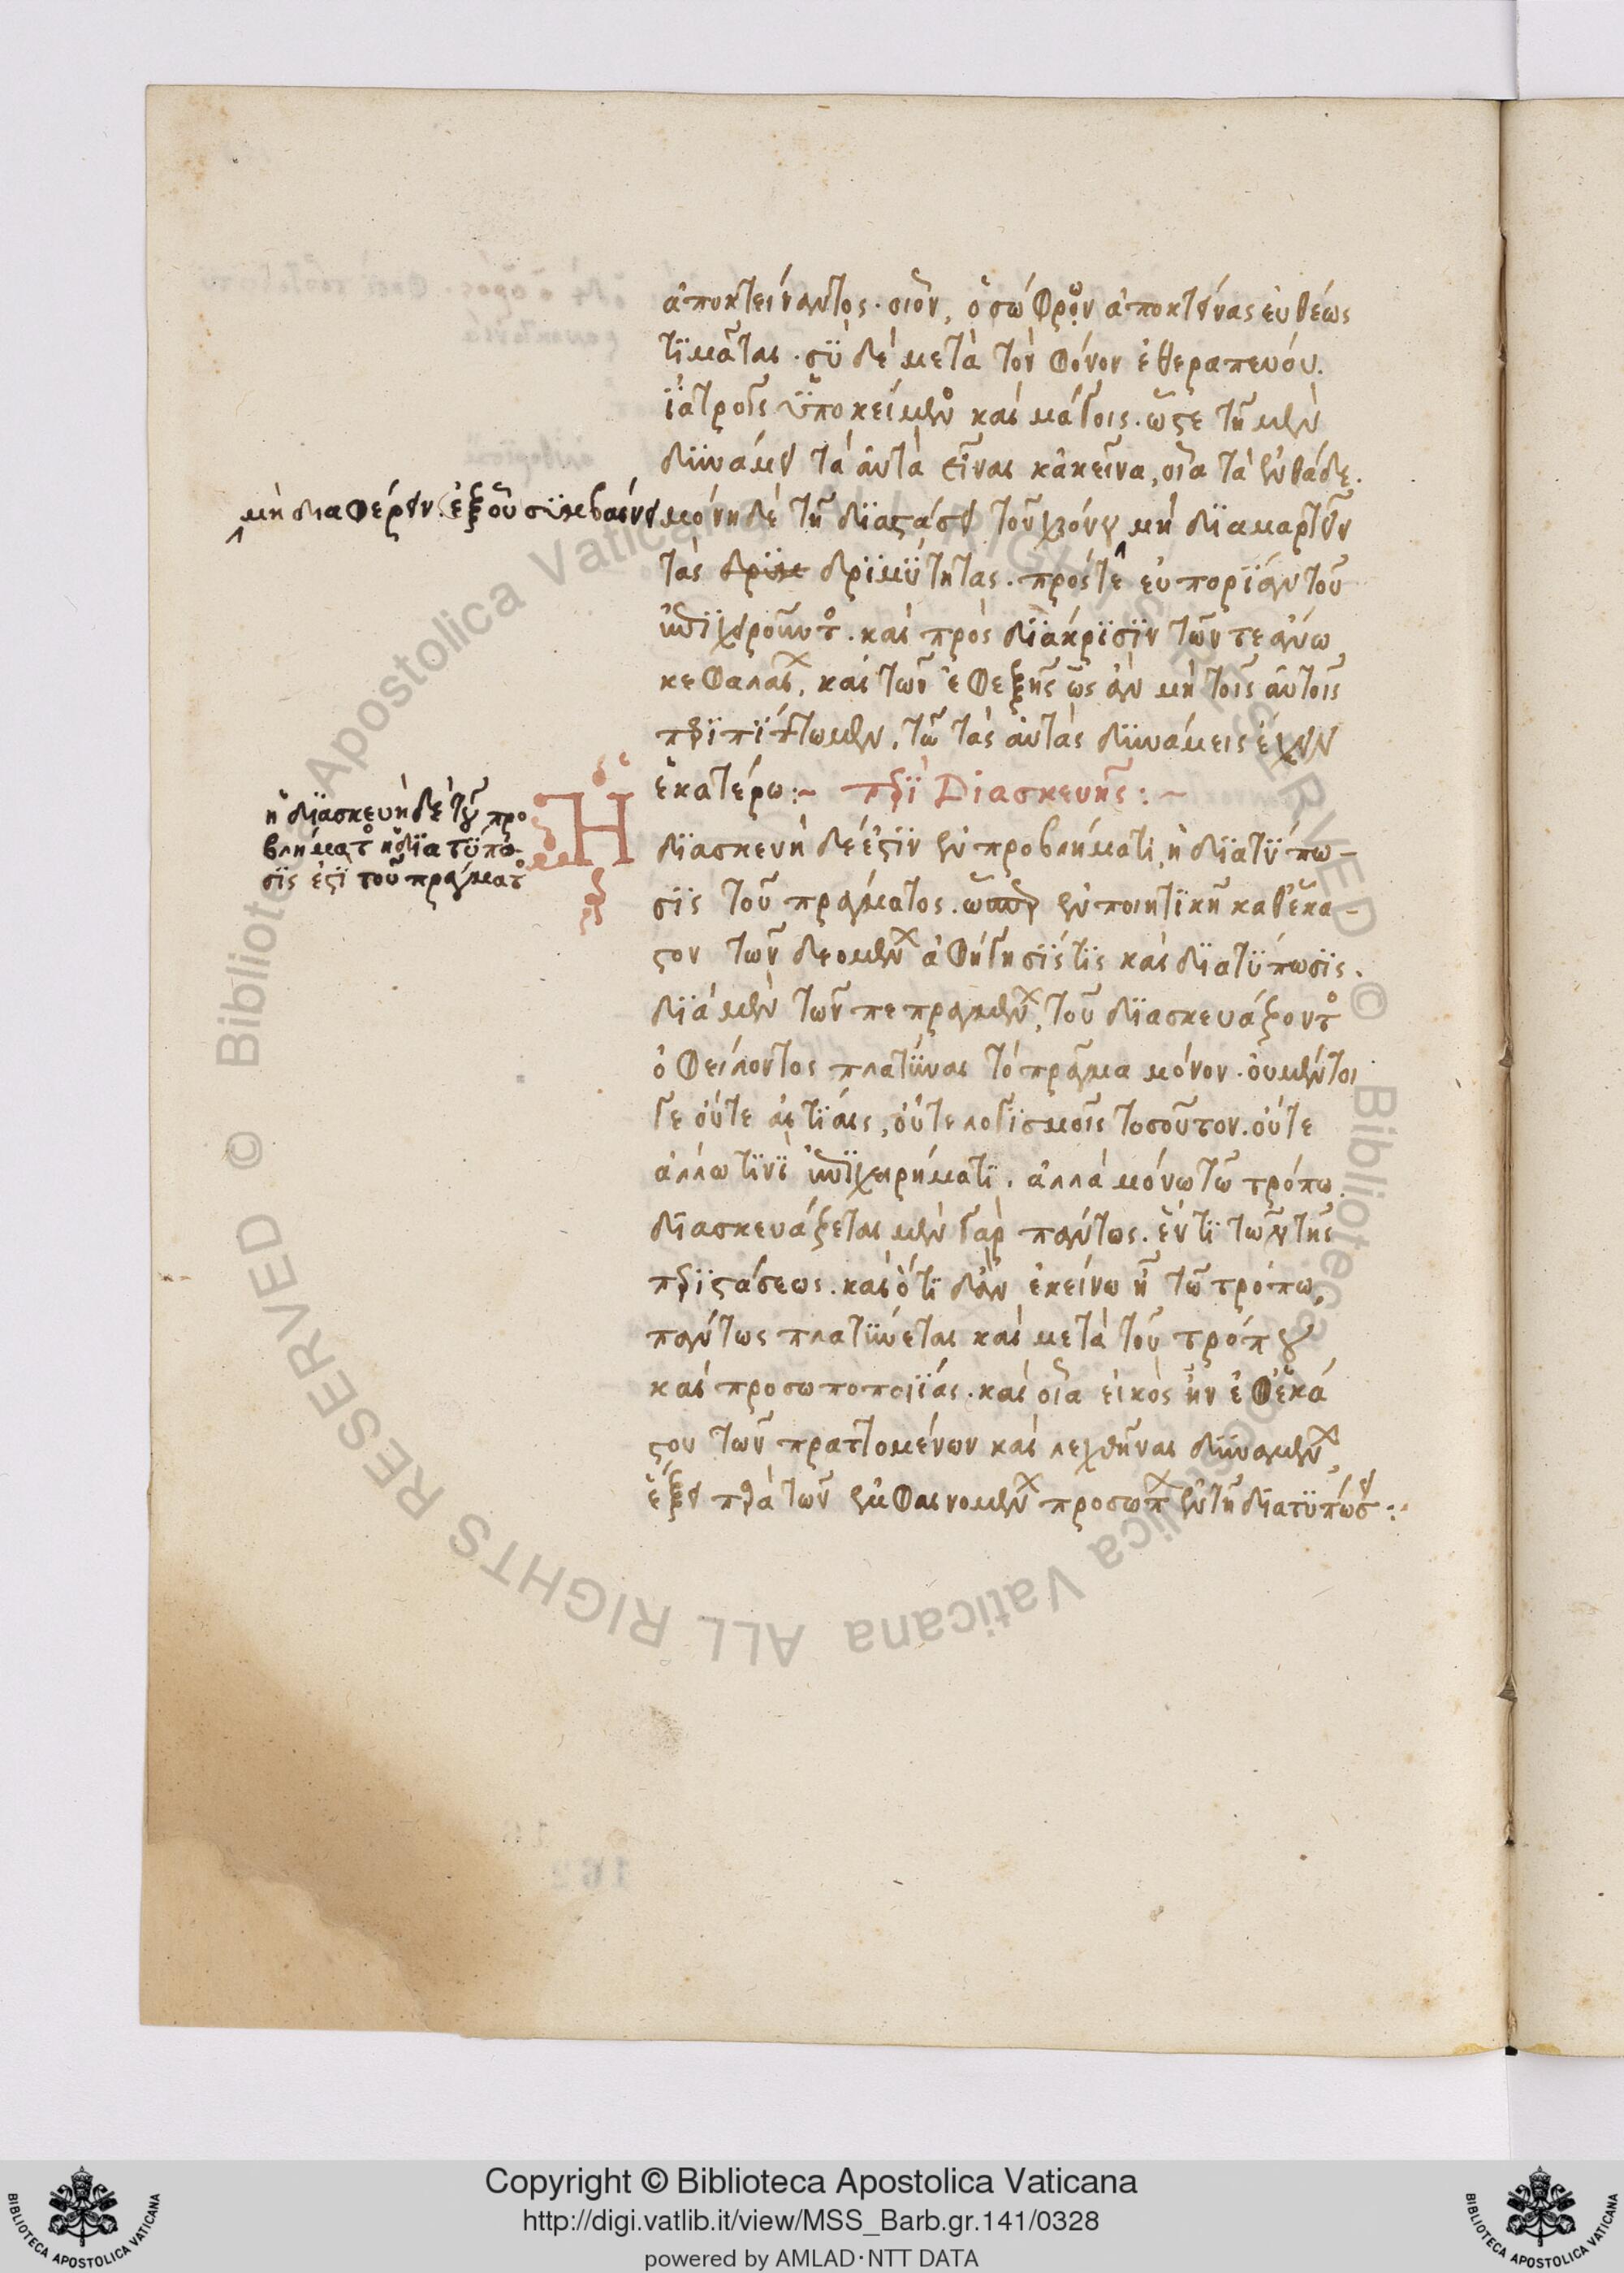 ἀποκτείναντος. οἷον, ὁ σώφρων ἀποκτείνας εὐθέως
τϊμᾶται. σὺ δὲ μετὰ τὸν φόνον ἐθεραπεύου.
ἰατροῖς ὑποκείμενος καὶ μάγοις. ὥστε τῇ μὲν
δυνάμει τὰ αὐτὰ εἶναι κἀκεῖνα, οἷα τὰ ἐνθάδε.
μὴ διαφέρειν. ἐξ οὗ συμβαίνει
μόνη δὲ τῇ διαστάσει τοῦ χρόνου μὴ διαμαρτεῖν
τὰς δριμύτητας. πρός τε εὐπορίαν τοῦ
ἐπιχειροῦντος. καὶ πρὸς διάκρισιν τῶν τε ἄνω
κεφαλαίων, καὶ τῶν ἐφεξῆς ὡς ἂν μὴ τοῖς αὐτοῖς
περιπίπτωμεν, τῷ τὰς αὐτὰς δυνάμεις ἔχειν
ἑκατέρω:~ περὶ Διασκευῆς:~
ἡ διασκευὴ δὲ τοῦ προ
βλήματος ἡ διατύπω-
σις ἐστὶ τοῦ πράγματος
Η
διασκευὴ δέ ἐστιν ἐν προβλήματι, ἡ διατύπω-
σις τοῦ πράγματος. ἐν ποιητικῇ καθ' ἕκα-
στον τῶν δεομένων ἀφήγησίς τις καὶ διατύπωσις.
διὰ μὲν τῶν πεπραγμένων, τοῦ διασκευάζοντος
ὀφείλοντος πλατῦναι τὸ πρᾶγμα μόνον. οὐ μέντοι
γε οὔτε αἰτίαις, οὔτε λογισμοῖς τοσοῦτον. οὔτε
ἄλλω τινὶ ἐπιχειρήματι. ἀλλὰ μόνω τῷ τρόπω.
διασκευάζεται μὲν γὰρ πάντως. ἕν τι τῶν τῆς
περιστάσεως. καὶ ὅτι δ' ἂν ἐκείνω ᾖ τῷ τρόπω,
πάντως πλατύνεται καὶ μετὰ τοῦ τρόπου
καὶ προσωποποιΐας. καὶ οἷα εἰκὸς ἦν ἐφ' ἑκά
στου τῶν πραττομένων καὶ λεχθῆναι δυναμένων,
ἕξει παρὰ τῶν ἐμφαινομένων προσώπων ἐν τῇ διατυπώσει:
Copyright © Biblioteca Apostolica Vaticana
http://digi.vatlib.it/view/MSS_Barb.gr.141/0328
powered by AMLAD·NTT DATA